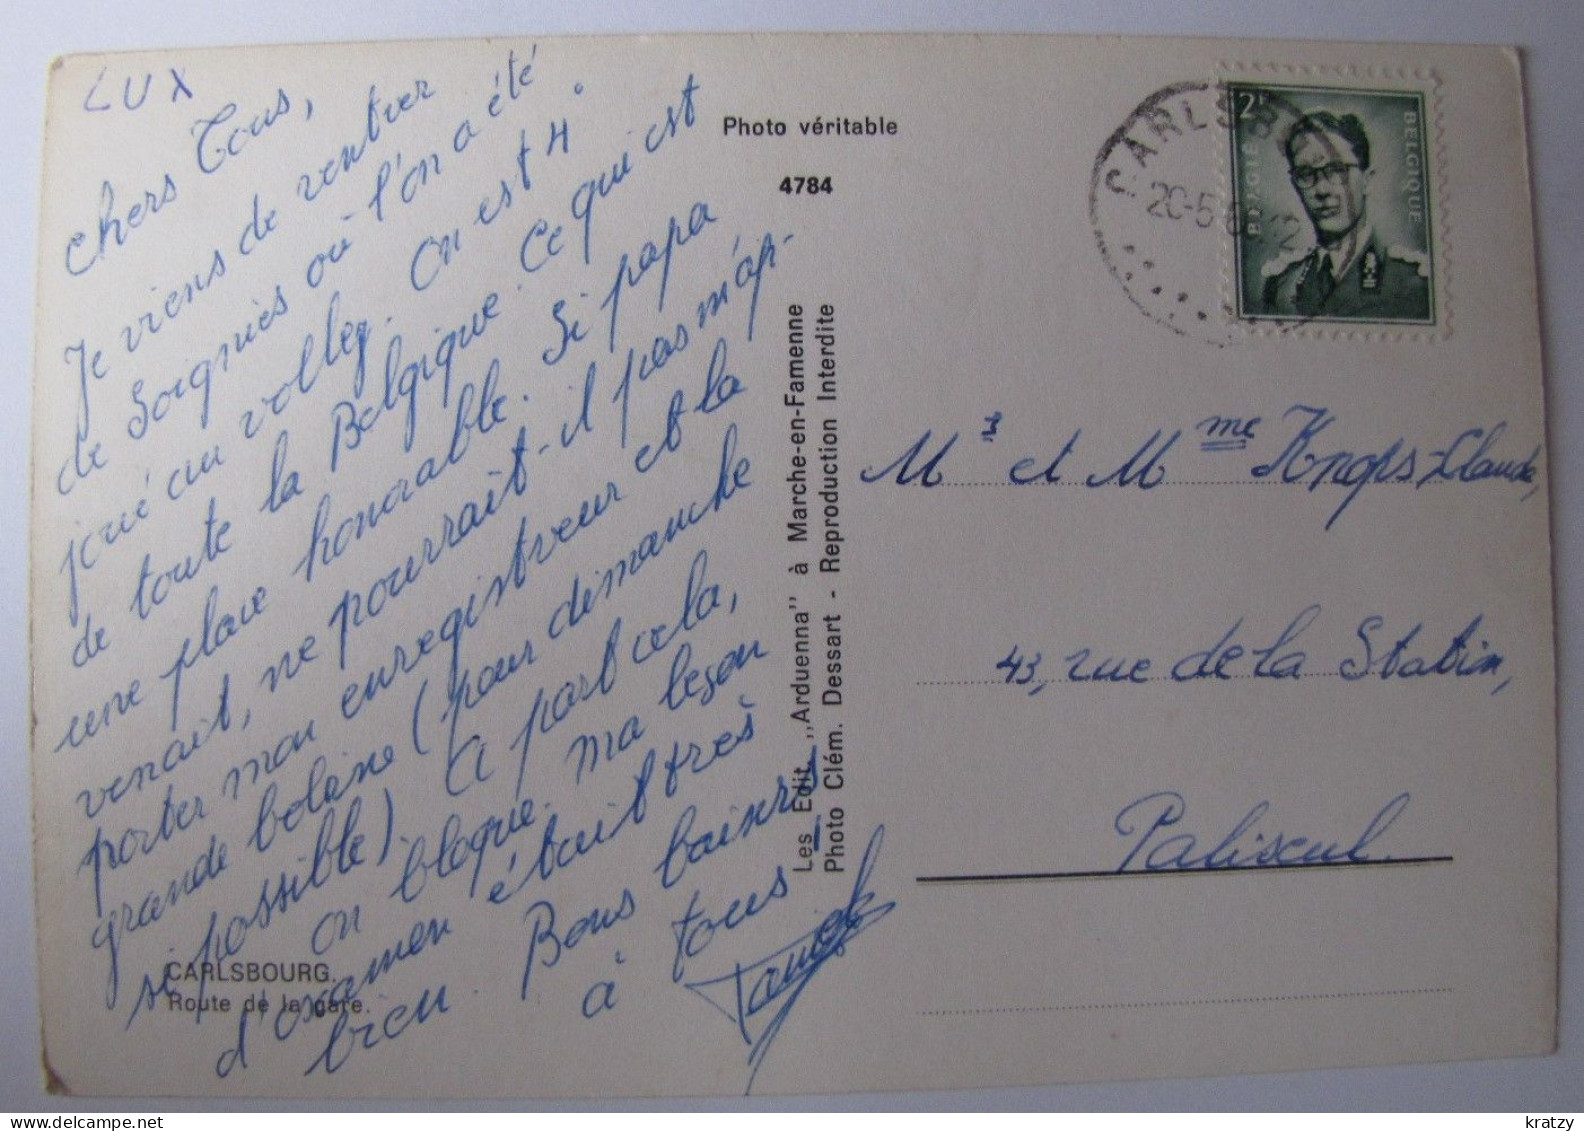 LUX
Chers Tous,
Je viens de rentrer
de Soignies où l'on a été
joué au volley. On est 4°
de toute la Belgique. Ce qui est
une place honorable. Si papa
venait, ne pourrait-il pas m'ap-
porter mon enregistreur et la
grande bobine (pour dimanche
si possible). A part cela,
on bloque. Ma leçon
d'examen était très
bien. Bons baisers
à tous
CARLSBOURG.
Route de la gare.
Photo véritable
4784
Les Edit. ,,Arduenna'' à Marche-en-Famenne
Photo Clém. Dessart - Reproduction Interdite
CARLSBO
20-5
2F
BELGIË
BELGIQUE
Mr et Mme Knops-Claude,
43, rue de la Station,
Paliseul.
kratzy